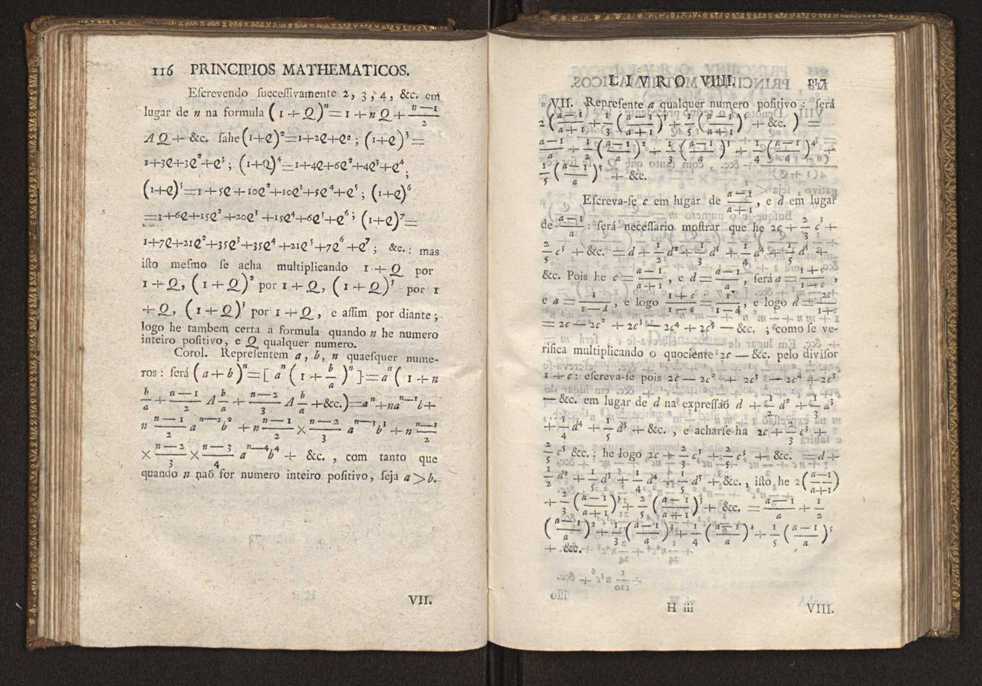 116 PRINCIPIOS MATHEMATICOS.
Escrevendo successivamente 2, 3, 4, &c. em
lugar de n na formula (1 + Q)ⁿ = 1 + nQ + (n—1)/2
AQ + &c. sahe (1+Q)² = 1+2Q+Q² ; (1+Q)³ =
1+3Q+3Q²+Q³ ; (1+Q)⁴ = 1+4Q+6Q²+4Q³+Q⁴ ;
(1+Q)⁵ = 1+5Q+10Q²+10Q³+5Q⁴+Q⁵ ; (1+Q)⁶
= 1+6Q+15Q²+20Q³+15Q⁴+6Q⁵+Q⁶ ; (1+Q)⁷ =
1+7Q+21Q²+35Q³+35Q⁴+21Q⁵+7Q⁶+Q⁷ ; &c. : mas
isto mesmo se acha multiplicando 1 + Q por
1 + Q, (1+Q)² por 1 + Q, (1+Q)³ por 1
+ Q, (1+Q)⁴ por 1 + Q, e assim por diante ;
logo he tambem certa a formula quando n he numero
inteiro positivo, e Q qualquer numero.
Corol. Representem a, b, n quaesquer nume-
ros : será (a+b)ⁿ = [aⁿ (1 + b/a)ⁿ] = aⁿ (1 + n
b/a + (n—1)/2 A b/a + (n—2)/3 A b/a + &c.) = aⁿ + naⁿ⁻¹b +
n (n—1)/2 aⁿ⁻²b² + n (n—1)/2 × (n—2)/3 aⁿ⁻³b³ + n (n—1)/2
× (n—2)/3 × (n—3)/4 aⁿ⁻⁴b⁴ + &c. , com tanto que
quando n naõ for numero inteiro positivo, seja a > b.
VII.
LIVRO VIIII.
VII. Represente a qualquer numero positivo : será
2((a—1)/(a+1) + 1/3 ((a—1)/(a+1))³ + 1/5 ((a—1)/(a+1))⁵ + &c.) =
(a—1)/a + 1/2 ((a—1)/a)² + 1/3 ((a—1)/a)³ + 1/4 ((a—1)/a)⁴ +
1/5 ((a—1)/a)⁵ + &c.
Escreva-se c em lugar de (a—1)/(a+1) , e d em lugar
de (a—1)/a : será necessario mostrar que he 2c + 2/3 c³ +
2/5 c⁵ + &c. = d + 1/2 d² + 1/3 d³ + 1/4 d⁴ + 1/5 d⁵ +
&c. Pois he c = (a—1)/(a+1) , e d = (a—1)/a , será a = (1+c)/(1—c) ,
e a = 1/(1—d) , e logo (1+c)/(1—c) = 1/(1—d) , e logo d = 2c/(1+c)
= 2c — 2c² + 2c³ — 2c⁴ + 2c⁵ — &c. ; como se ve-
rifica multiplicando o quociente 2c — &c. pelo divisor
1 + c : escreva-se pois 2c — 2c² + 2c³ — 2c⁴ + 2c⁵
— &c. em lugar de d na expressaõ d + 1/2 d² + 1/3 d³
+ 1/4 d⁴ + 1/5 d⁵ + &c. , e achar-se-ha 2c + 2/3 c³ +
2/5 c⁵ &c. : he logo 2c + 2/3 c³ + 2/5 c⁵ + &c. = d +
1/2 d² + 1/3 d³ + 1/4 d⁴ + 1/5 d⁵ + &c. , isto he 2((a—1)/(a+1))
+ 2/3 ((a—1)/(a+1))³ + 2/5 ((a—1)/(a+1))⁵ + &c. = (a—1)/a + 1/2
((a—1)/a)² + 1/3 ((a—1)/a)³ + 1/4 ((a—1)/a)⁴ + 1/5 ((a—1)/a)⁵
+ &c.
H iii VIII.